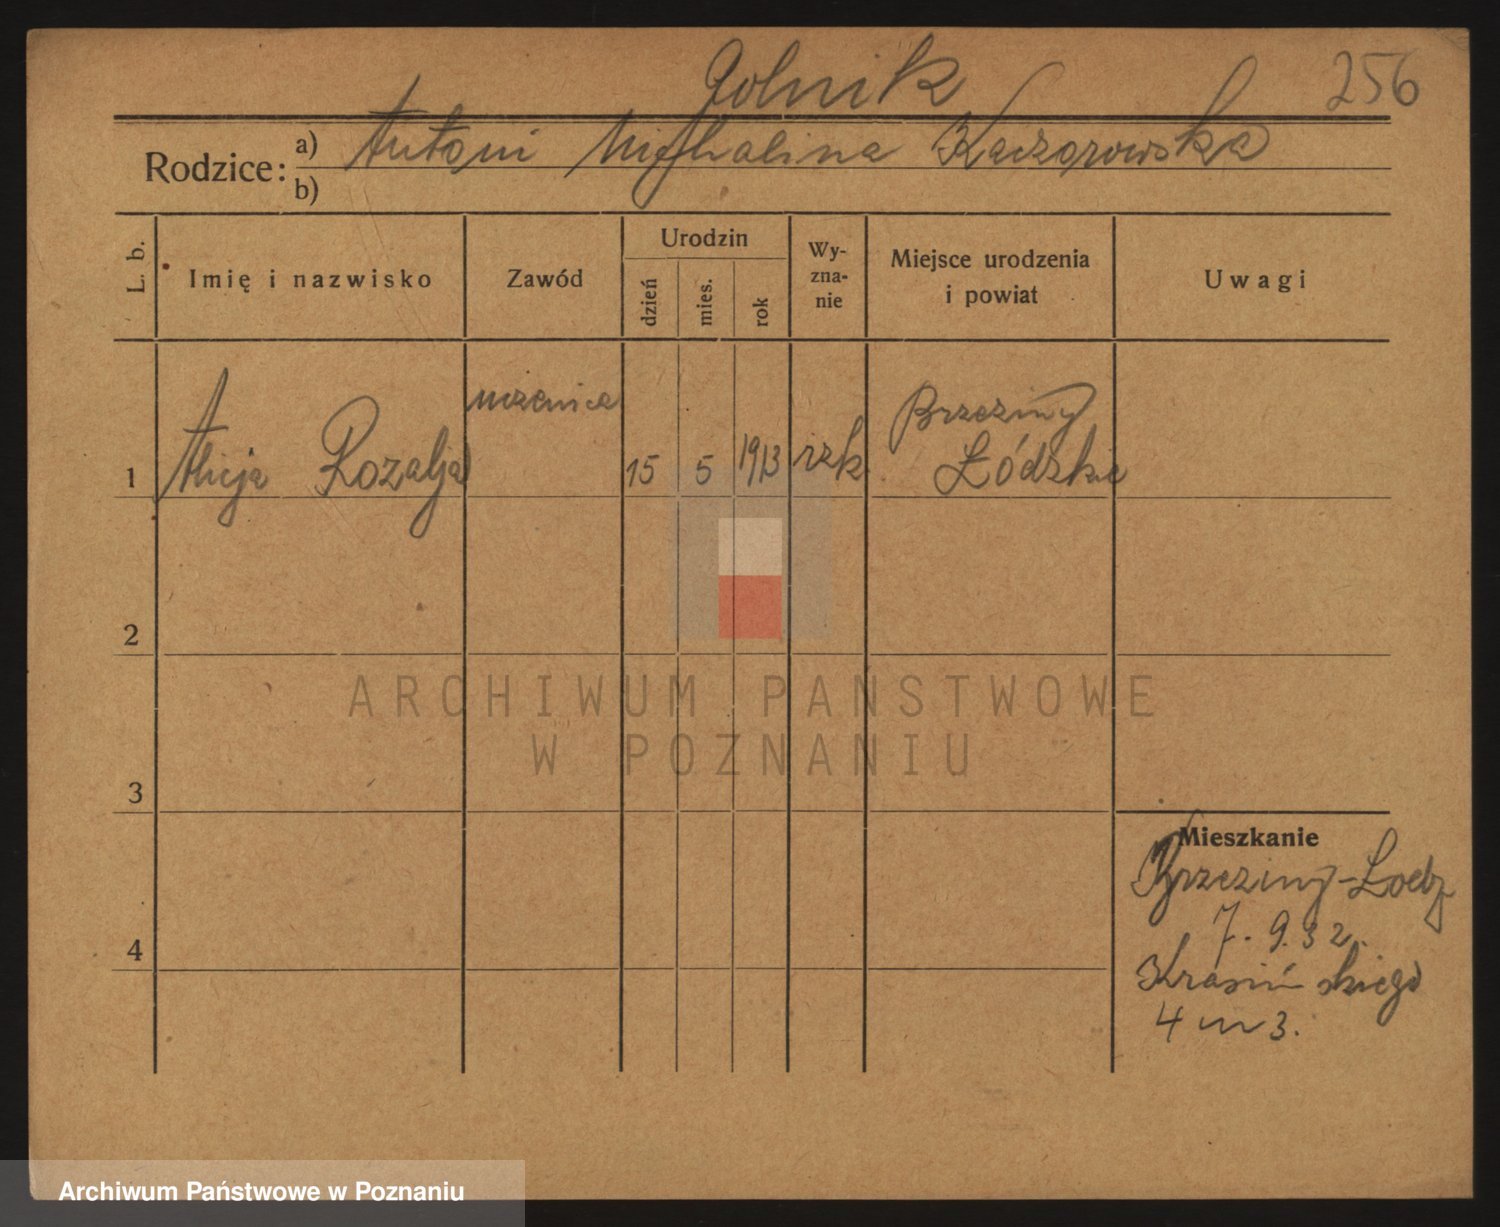 Rolnik
256
Rodzice:
a) Antoni Michalina Kaczorowska
b)
L. b.
Imię i nazwisko
Zawód
Urodzin
dzień
mies.
rok
Wy-
zna-
nie
Miejsce urodzenia
i powiat
Uwagi
1 Alicja Rozalja
uczenica
15 5 1913 rzk
Brzeziny
Łódzkie
2
3
4
Mieszkanie
Brzeziny-Łódz
7. 9. 32.
Krasińskiego
4 m 3.
ARCHIWUM PANSTWOWE
W POZNANIU
Archiwum Państwowe w Poznaniu